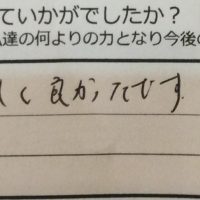 ていかがでしたか？
達の何よりの力となり今後の
く良かったです